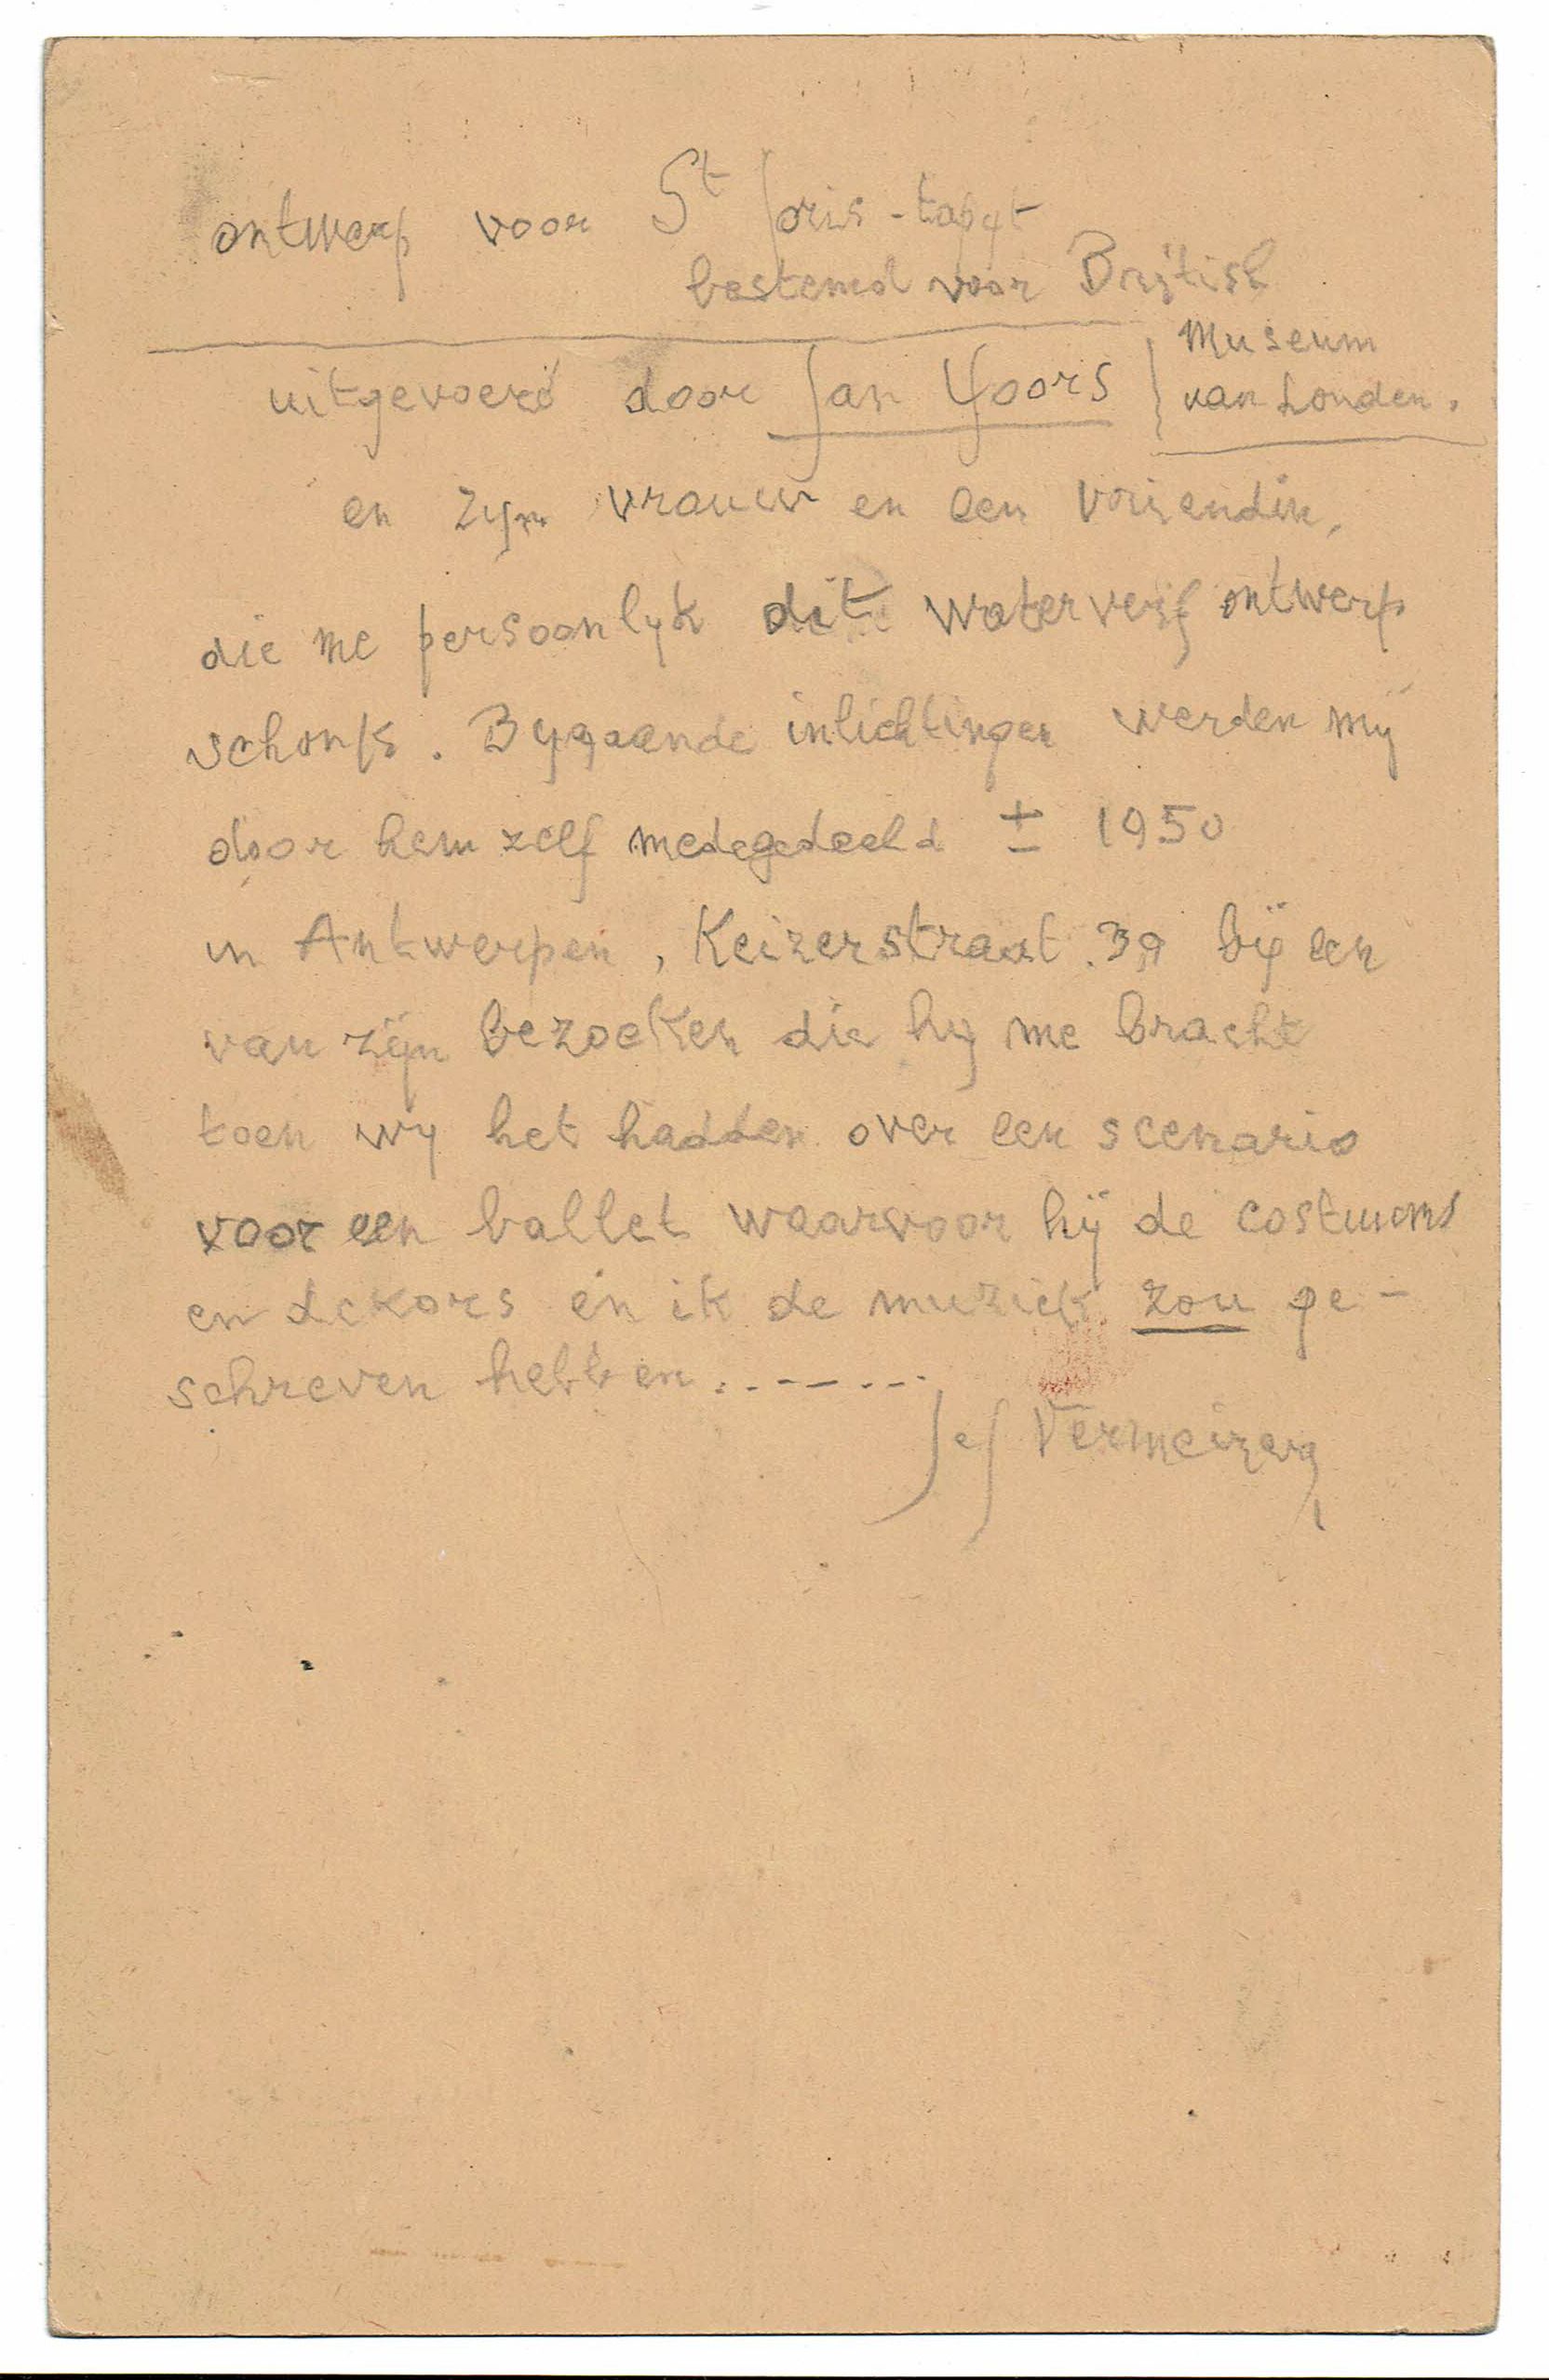 ontwerp voor St Joris-tapyt
bestemd voor British
Museum
van Londen.
uitgevoerd door Jan Yoors
en zyn vrouw en een vriendin,
die me persoonlyk dit waterverf ontwerp
schonk. Bygaande inlichtingen werden mij
door hem zelf medegedeeld ± 1950
in Antwerpen, Keizerstraat 39 bij een
van zijn bezoeken die hy me bracht
toen wy het hadden over een scenario
voor een ballet waarvoor hij de costuums
en dekors en ik de muziek zou ge-
schreven hebben........
Jef